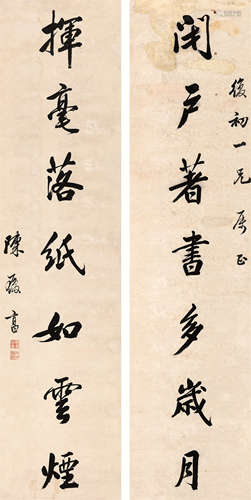 復初一兄属正
閉戶著書多歲月
揮毫落紙如雲煙
陳